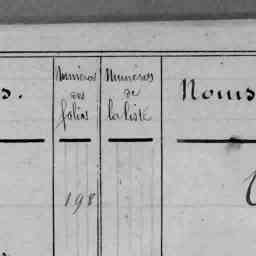 s.
Numéros
des
folios
Numéros
de
la liste
Noms
198